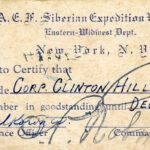 A.E.F. Siberian Expedition
Eastern-Midwest Dept.
New York, N. Y.
to Certify that
CORP. CLINTON HILL
mber in goodstanding until DE
ance Officer Comma